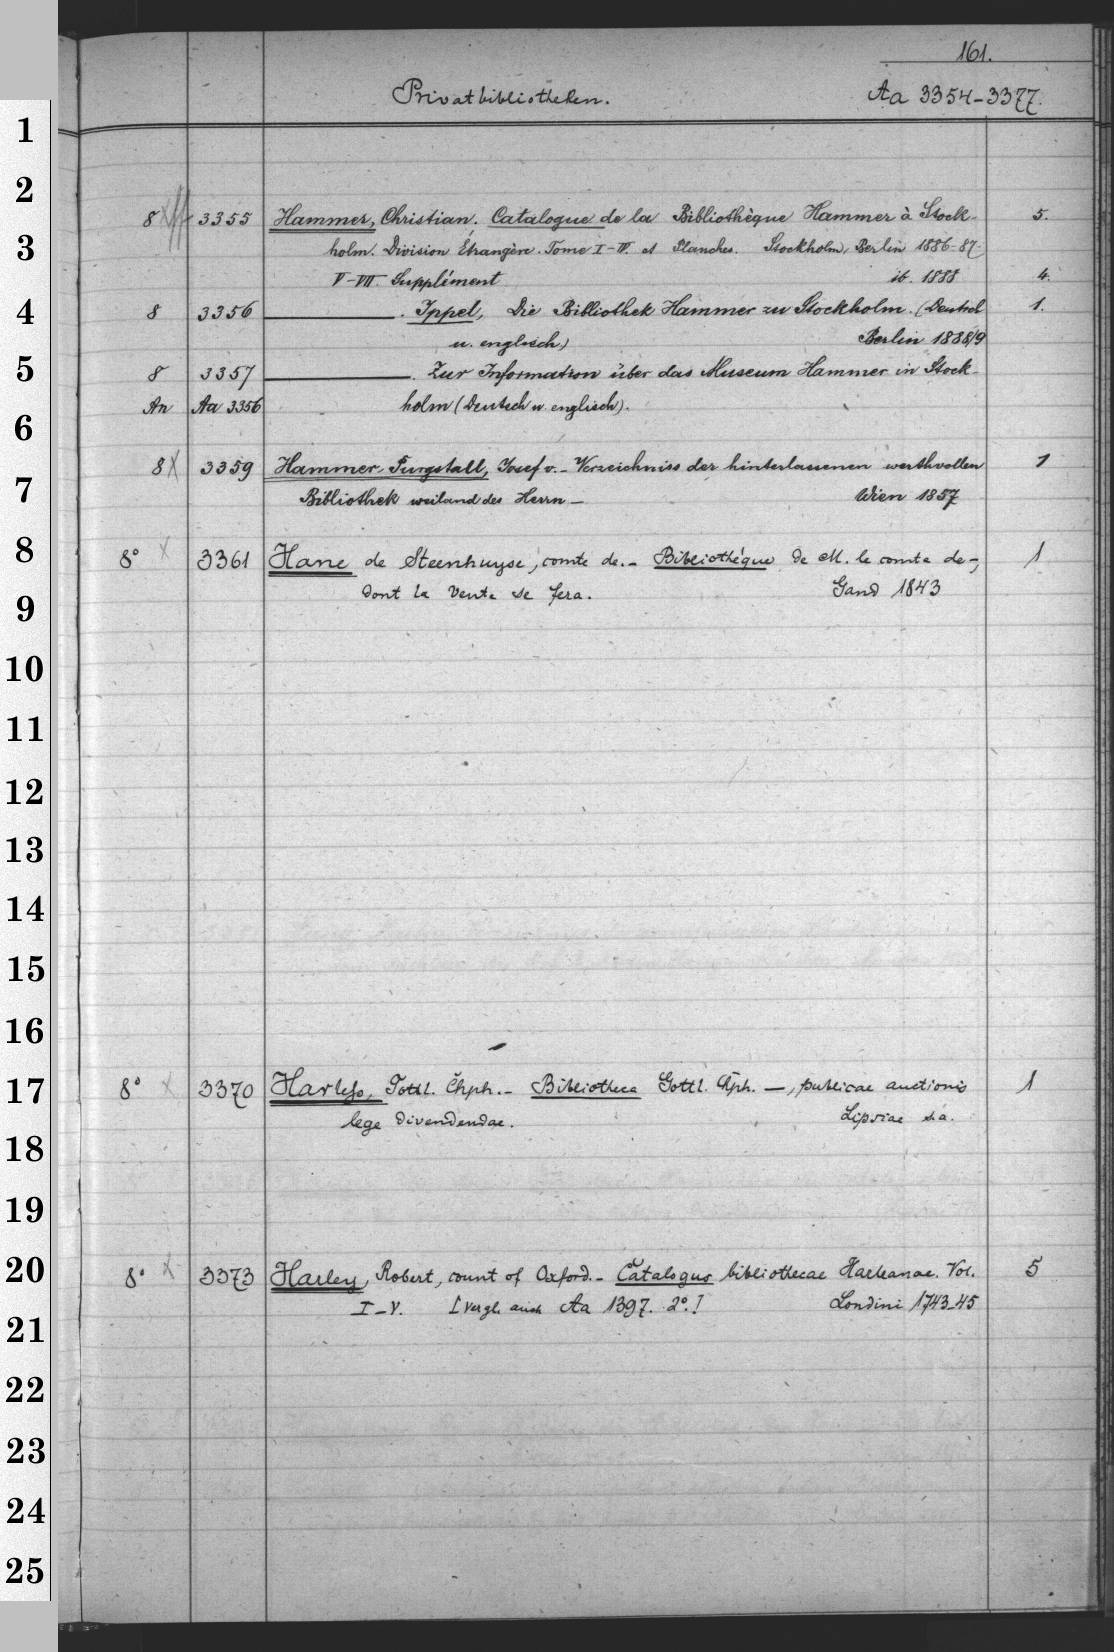 161.
Privatbibliotheken. Aa 3354-3377.
1
2
8 3355 Hammer, Christian. Catalogue de la Bibliothèque Hammer à Stock- 5.
3
holm. Division Étrangère. Tome I-IV. et Planches. Stockholm, Berlin 1886-87.
V-VII. Supplément ib. 1888 4.
4
8 3356 ———. Ippel, Die Bibliothek Hammer zu Stockholm. (Deutsch 1.
u. englisch) Berlin 1888/9
5
8 3357 ———. Zur Information über das Museum Hammer in Stock-
An Aa 3356 holm (Deutsch u. englisch).
6
8 X 3359 Hammer-Purgstall, Josef v. - Verzeichniss der hinterlassenen werthvollen 1
7
Bibliothek weiland des Herrn — Wien 1857
8
8° X 3361 Hane de Steenhuyse, comte de. - Bibliothéque de M. le comte de -, 1
9
dont la vente se fera. Gand 1843
10
11
12
13
14
15
16
17
8° X 3370 Harless, Gottl. Chph. - Bibliotheca Gottl. Chph. —, publicae auctionis 1
lege divendendae. Lipsiae s.a.
18
19
20
8° X 3373 Harley, Robert, count of Oxford. - Catalogus bibliothecae Harleanae. Vol. 5
I-V. [Vergl. auch Aa 1397. 2°.] Londini 1743-45
21
22
23
24
25